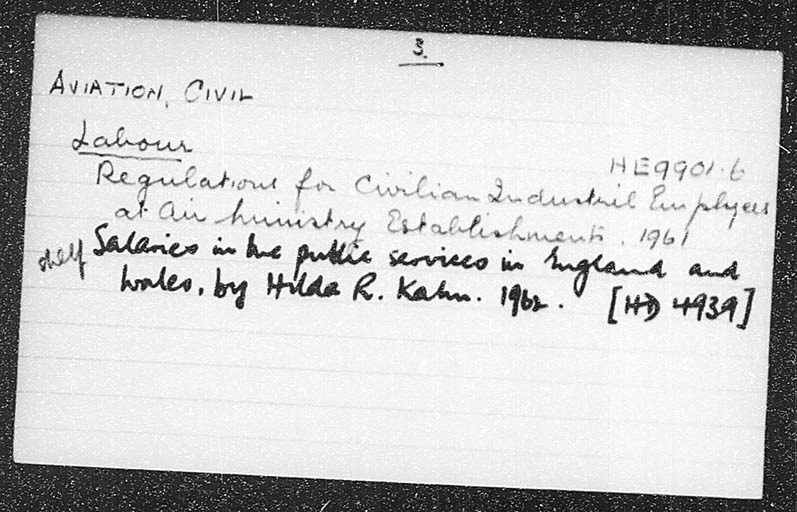 3.
AVIATION, CIVIL
Labour
HE9901.6
Regulations for Civilian Industrial Employees
at Air Ministry Establishments. 1961
shelf Salaries in the public services in England and
Wales, by Hilda R. Kahn. 1962. [HD 4939]